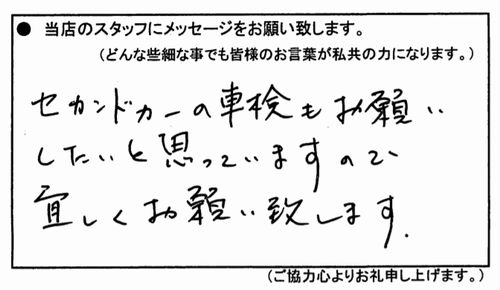 ● 当店のスタッフにメッセージをお願い致します。
(どんな些細な事でも皆様のお言葉が私共の力になります。)
セカンドカーの車検もお願い
したいと思っていますので
宜しくお願い致します.
(ご協力心よりお礼申し上げます。)